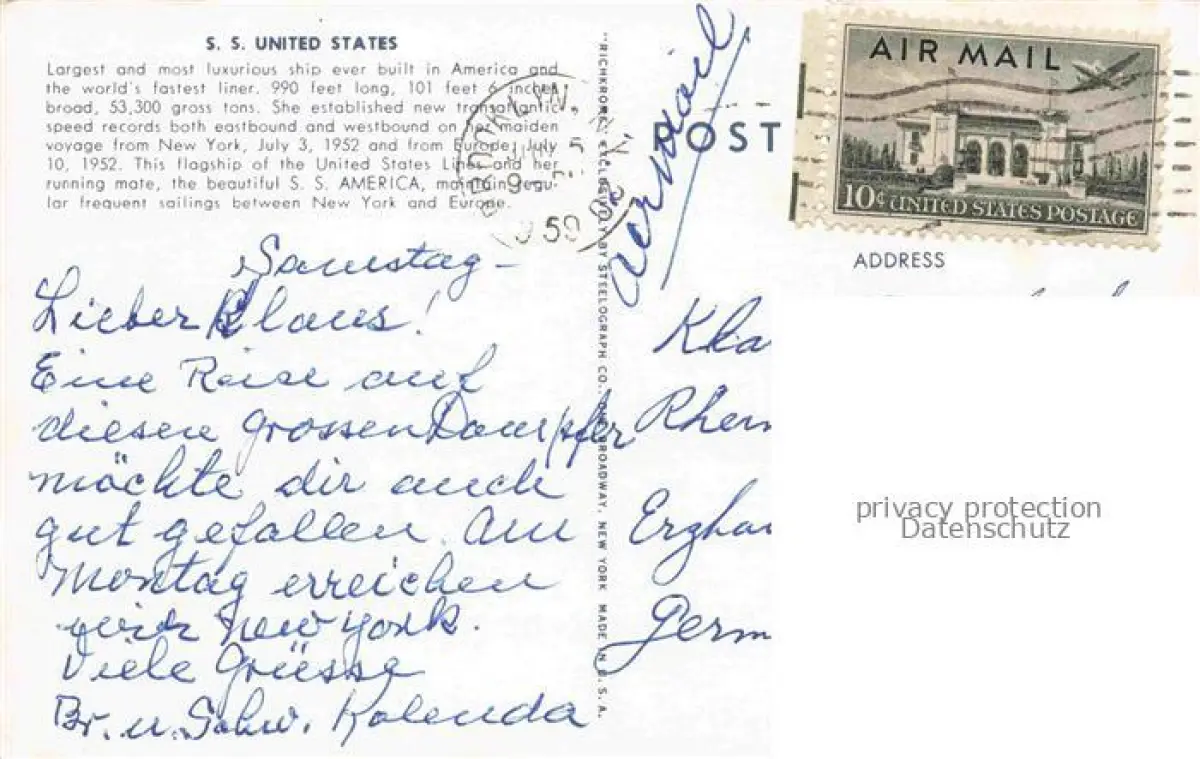 S. S. UNITED STATES
Largest and most luxurious ship ever built in America and
the world's fastest liner. 990 feet long, 101 feet 6 inches
broad, 53,300 gross tons. She established new transatlantic
speed records both eastbound and westbound on her maiden
voyage from New York, July 3, 1952 and from Europe, July
10, 1952. This flagship of the United States Lines and her
running mate, the beautiful S. S. AMERICA, maintain regu-
lar frequent sailings between New York and Europe.
Samstag -
Lieber Klaus!
Eine Reise auf
diesem grossen Dampfer
möchte dir auch
gut gefallen. Am
Montag erreichen
wir New York.
Viele Grüsse
Br. u. Schw. Kolenda
"RICHKROME" EXCLUSIVELY BY STEELOGRAPH CO., BROADWAY, NEW YORK MADE IN U. S. A.
Air Mail
POST
AIR MAIL
10¢ UNITED STATES POSTAGE
ADDRESS
Kla
Rhein
Erzha
Germ
privacy protection
Datenschutz